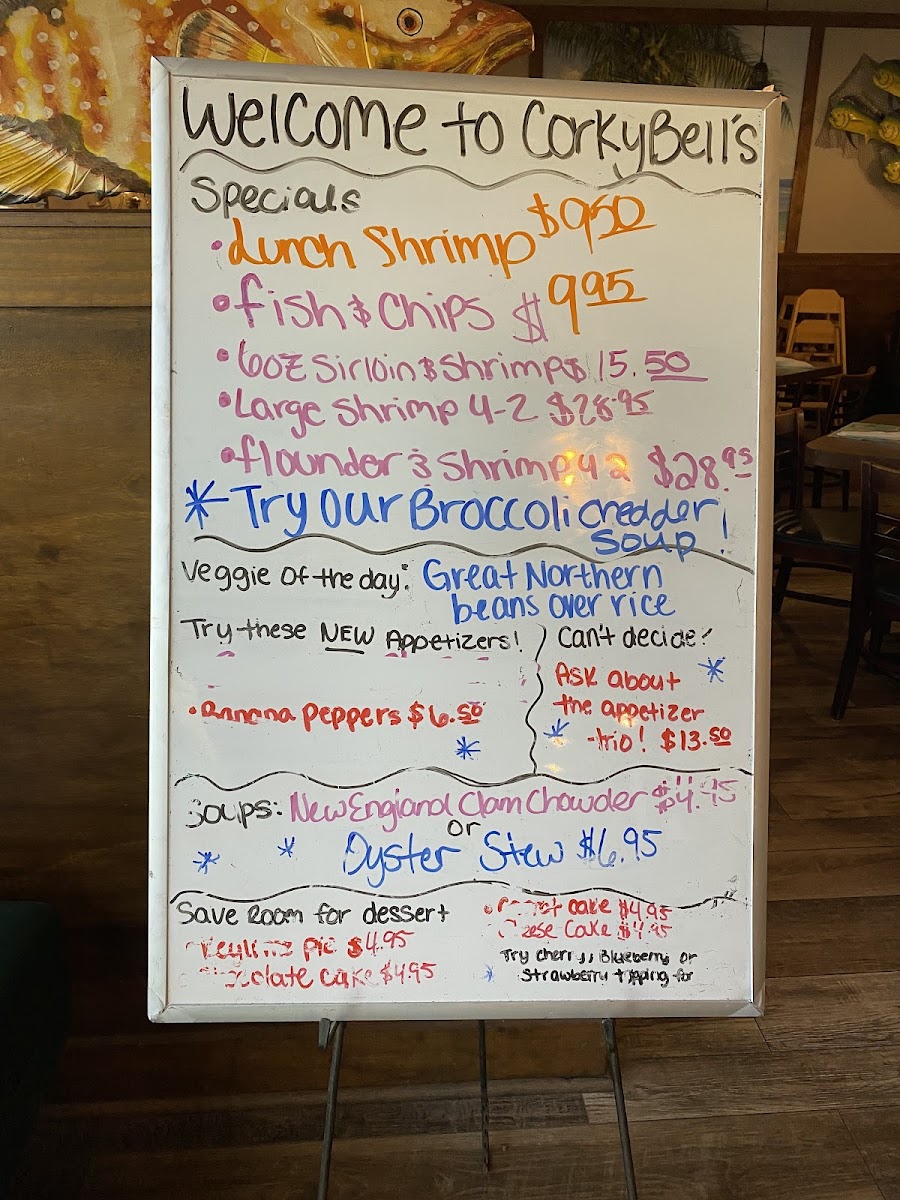 Welcome to CorkyBell's
Specials
• Lunch Shrimp $9.50
• fish & Chips $9.95
• 6oz Sirloin & Shrimp $15.50
• Large Shrimp 4-2 $28.95
• flounder & Shrimp 4 2 $28.95
* Try Our Broccoli chedder
Soup!
Veggie of the day: Great Northern
beans over rice
Try these NEW Appetizers!
• Banana Peppers $6.50
Can't decide?
Ask about
the appetizer
-trio! $13.50
Soups: New England Clam Chowder $4.95
or
Oyster Stew $6.95
Save Room for dessert
Keylime pie $4.95
Chocolate cake $4.95
• Carrot cake $4.95
Cheese Cake $4.95
Try cherry, Blueberry or
Strawberry topping for